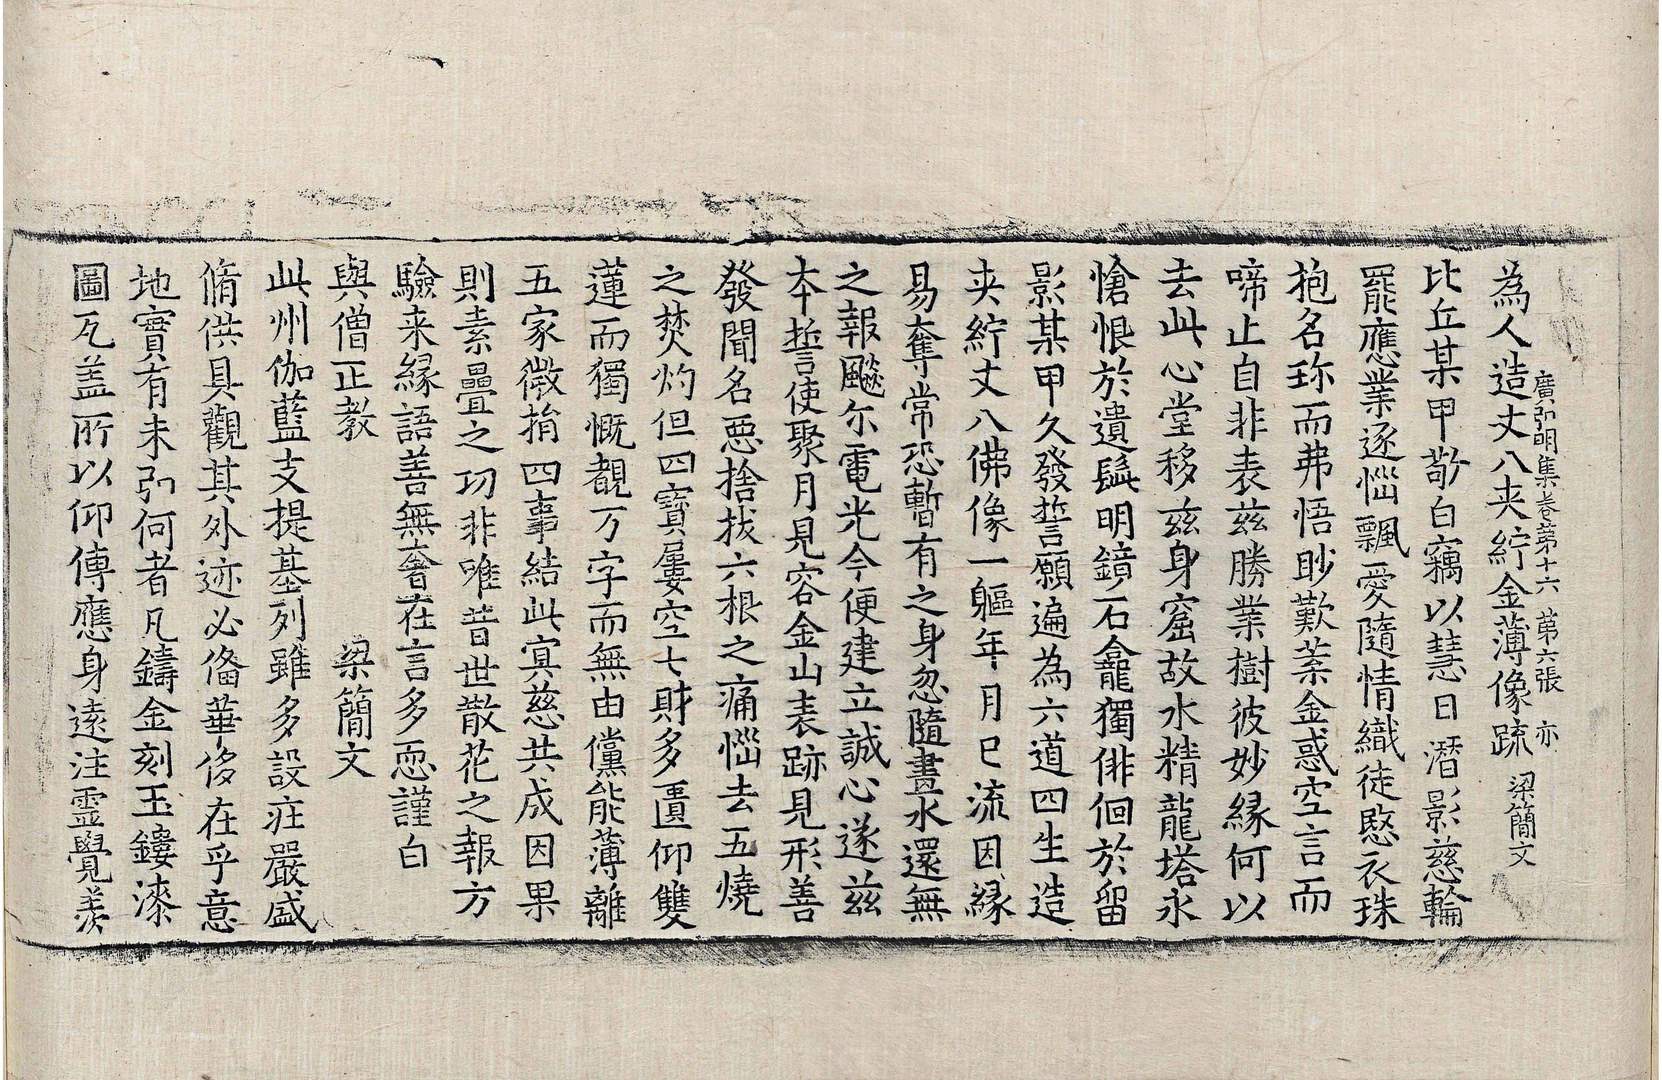 廣弘明集卷第十六　第六張　亦
為人造丈八夹紵金薄像疏　梁簡文
比丘某甲敬白竊以慧日潛影慈輪
罷應業逐惱飄愛隨情織徒愍衣珠
抱名珎而弗悟眇歎䒾金惑空言而
啼止自非表茲勝業樹彼妙緣何以
去此心堂移茲身窟故水精龍塔永
愴恨於遺髢明鏡石龕獨徘徊於留
影某甲久發誓願遍為六道四生造
夹紵丈八佛像一軀年月已流因緣
易奪常恐暫有之身忽隨畫水還無
之報飈尔電光今便建立誠心遂茲
本誓使聚月見容金山表跡見形善
發聞名惡捨拔六根之痛惱去五燒
之焚灼但四寶屢空七財多匱仰雙
蓮而獨慨覩万字而無由儻能薄離
五家微捐四事結此寘慈共成因果
則素疊之功非唯昔世散花之報方
驗来緣語善無奢在言多恧謹白
與僧正教　梁簡文
此州伽藍支提基列雖多設庄嚴盛
脩供具觀其外迹必俻華侈在乎意
地實有未弘何者凡鑄金刻玉鏤漆
圖瓦盖所以仰傳應身遠注靈覺羨